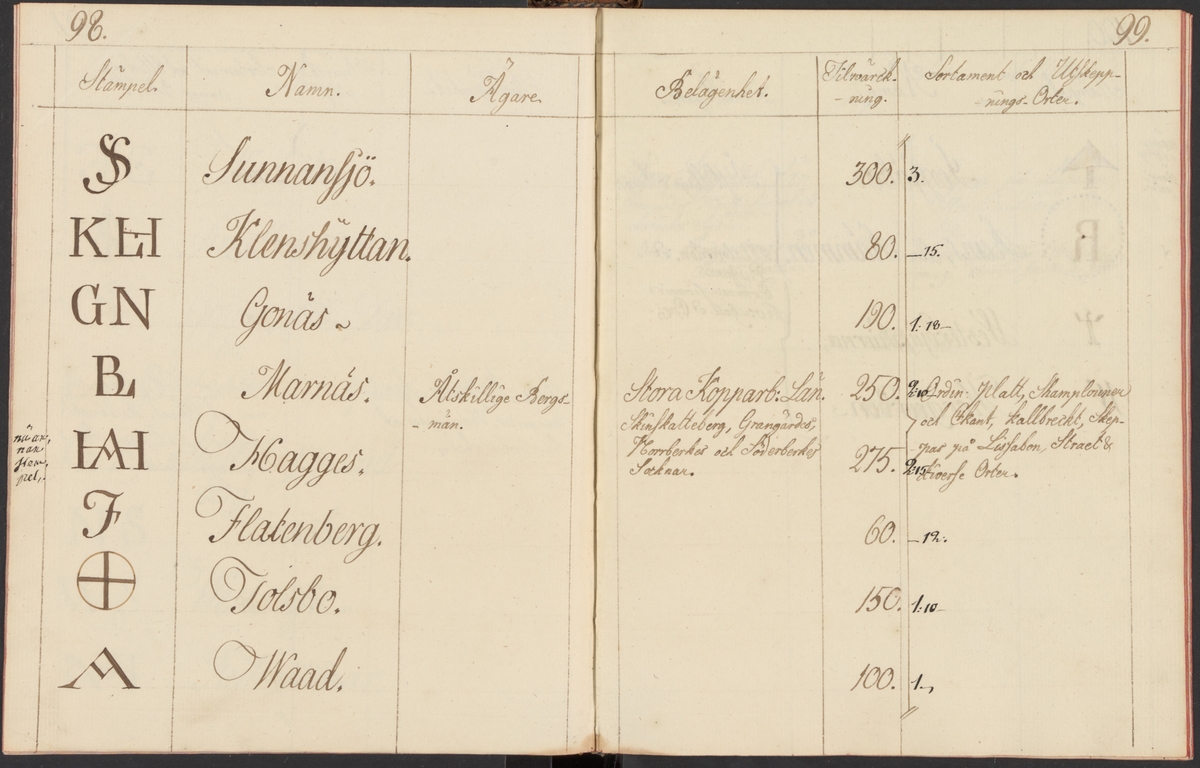 98.
99.
Stämpel. Namn. Ägare. Belägenhet. Tilwärck-
-ning. Sortament och Utskepp-
-nings-Orter.
SS Sunnansjö. 300. 3.
KEH Klenshyttan. 80. – 15.
GN Gonäs 190. 1: 18 –
BL Marnäs. Åtskillige Bergs-
-män. Stora Kopparb: Län.
Skinskatteberg, Grangärdes,
Norrberkes och Söderberkes
Socknar. 250. 2:10 Ordin: Platt, Stamplouner
och Fkant, kallbräckt, Skep-
pas på Lissabon, Straet &
diverse Orter.
HAH Hagges. 275. 2:15
nu an-
nan
stem-
pel.
F Flatenberg. 60. – 12.
Tolsbo. 150. 1: 10 –
A Waad. 100. 1 –,